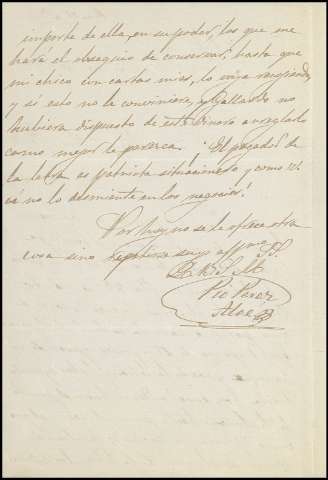 importe de ella, en su poder, los que me
hará el obsequio de conservar, hasta que
mi chico con cartas mias, lo vaya
y si esto no le conviniere, y Gallardo no
hubiera dispuesto de este dinero arreglarlo
como mejor le parezca. El pagador de
la letra es patriota situacionero y como tl
vá no lo desmienta en los negocios!
Por hoy, no se le ofrece otra
cosa sino repetirse suyo affmo. S. S.
Q. B. S. M.
Pio Perez
Aloe